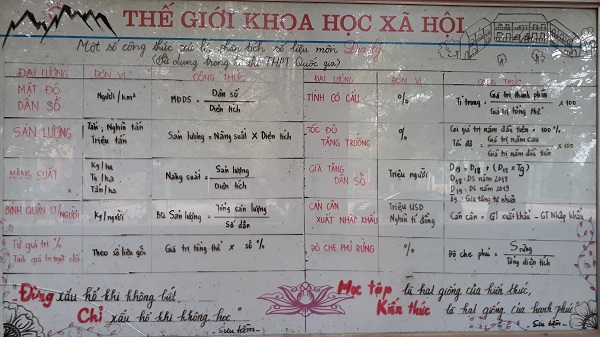 THẾ GIỚI KHOA HỌC XÃ HỘI
Một số công thức xử lí, phân tích số liệu môn Địa lý
(Sử dụng trong kì thi THPT Quốc gia)
ĐẠI LƯỢNG ĐƠN VỊ CÔNG THỨC
MẬT ĐỘ DÂN SỐ Người/km² MĐDS = Dân số / Diện tích
SẢN LƯỢNG Tấn; Nghìn tấn Triệu tấn Sản lượng = Năng suất x Diện tích
NĂNG SUẤT Kg/ha Tạ/ha Tấn/ha Năng suất = Sản lượng / Diện tích
BÌNH QUÂN LT/NGƯỜI Kg/người BQ Sản lượng = Tổng sản lượng / Số dân
Từ giá trị % Tính giá trị tuyệt đối Theo số liệu gốc Giá trị tổng thể x số %
ĐẠI LƯỢNG ĐƠN VỊ CÔNG THỨC
TÍNH CƠ CẤU % Tỉ trọng = Giá trị thành phần / Giá trị tổng thể x 100
TỐC ĐỘ TĂNG TRƯỞNG % Coi giá trị năm đầu tiên = 100%
Tốc độ = Giá trị năm sau / Giá trị năm đầu tiên x 100
GIA TĂNG DÂN SỐ Triệu người D19 = D18 + (D18 x Tg)
D18: DS năm 2018
D19: DS năm 2019
Tg: Gia tăng tự nhiên
CÁN CÂN XUẤT NHẬP KHẨU Triệu USD Nghìn tỉ đồng Cán cân = GT Xuất khẩu - GT Nhập khẩu
ĐỘ CHE PHỦ RỪNG % Độ che phủ = S rừng / Tổng diện tích
"Đừng xấu hổ khi không biết,
Chỉ xấu hổ khi không học."
- Sưu tầm -
Học tập là hạt giống của kiến thức,
Kiến thức là hạt giống của hạnh phúc
- Sưu tầm -